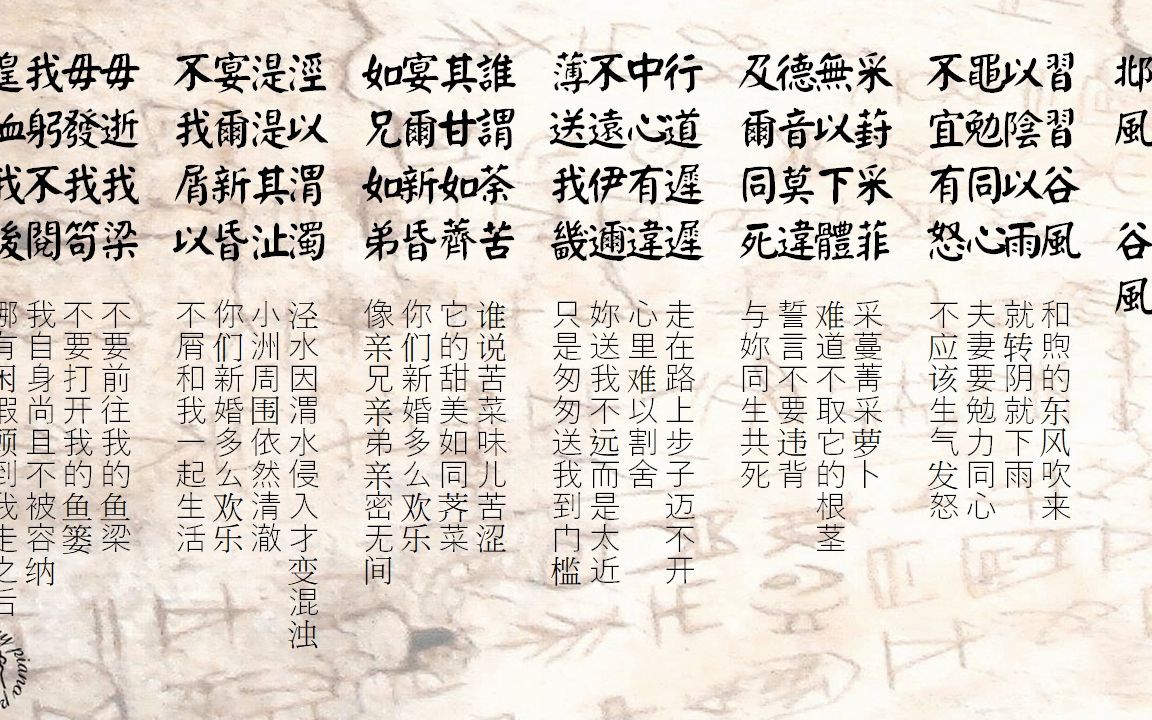 邶風 谷風
習習谷風
以陰以雨
黽勉同心
不宜有怒
和煦的东风吹来
就转阴就下雨
夫妻要勉力同心
不应该生气发怒
采葑采菲
無以下體
德音莫違
及爾同死
采蔓菁采萝卜
难道不取它的根茎
誓言不要违背
与妳同生共死
行道遲遲
中心有違
不遠伊邇
薄送我畿
走在路上步子迈不开
心里难以割舍
妳送我不远而是太近
只是匆匆送我到门槛
誰謂荼苦
其甘如薺
宴爾新昏
如兄如弟
谁说苦菜味儿苦涩
它的甜美如同荠菜
你们新婚多么欢乐
像亲兄亲弟亲密无间
涇以渭濁
湜湜其沚
宴爾新昏
不我屑以
泾水因渭水侵入才变混浊
小洲周围依然清澈
你们新婚多么欢乐
不屑和我一起生活
毋逝我梁
毋發我笱
我躬不閱
遑恤我後
不要前往我的鱼梁
不要打开我的鱼篓
我自身尚且不被容纳
哪有闲暇顾到我走之后